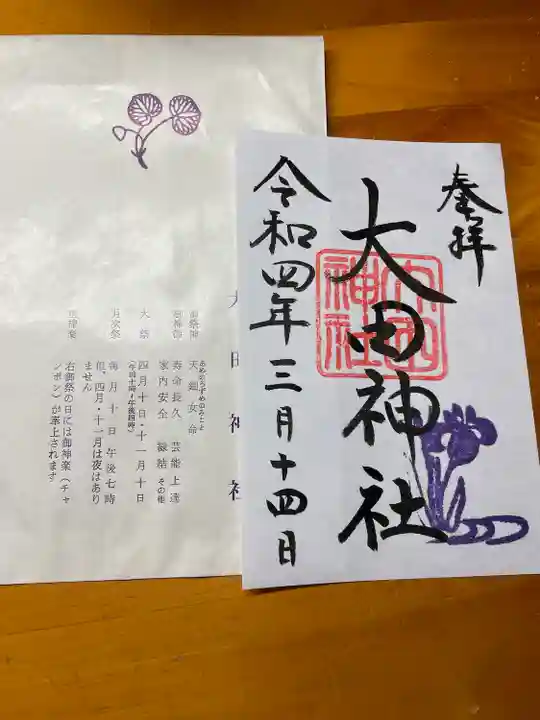 奉拝
大田神社
大田神社
令和四年三月十四日
大田神社
御祭神
あめのうずめのみこと
天鈿女命
御神徳
寿命長久 芸能上達
家内安全 縁結 その他
大祭
四月十日・十一月十日
(午前十時・午後四時)
月次祭
毎月十日午後七時
但、四月・十一月は夜はあり
ません
里神楽
右御祭の日には御神楽(チャ
ンポン)が奉上されます